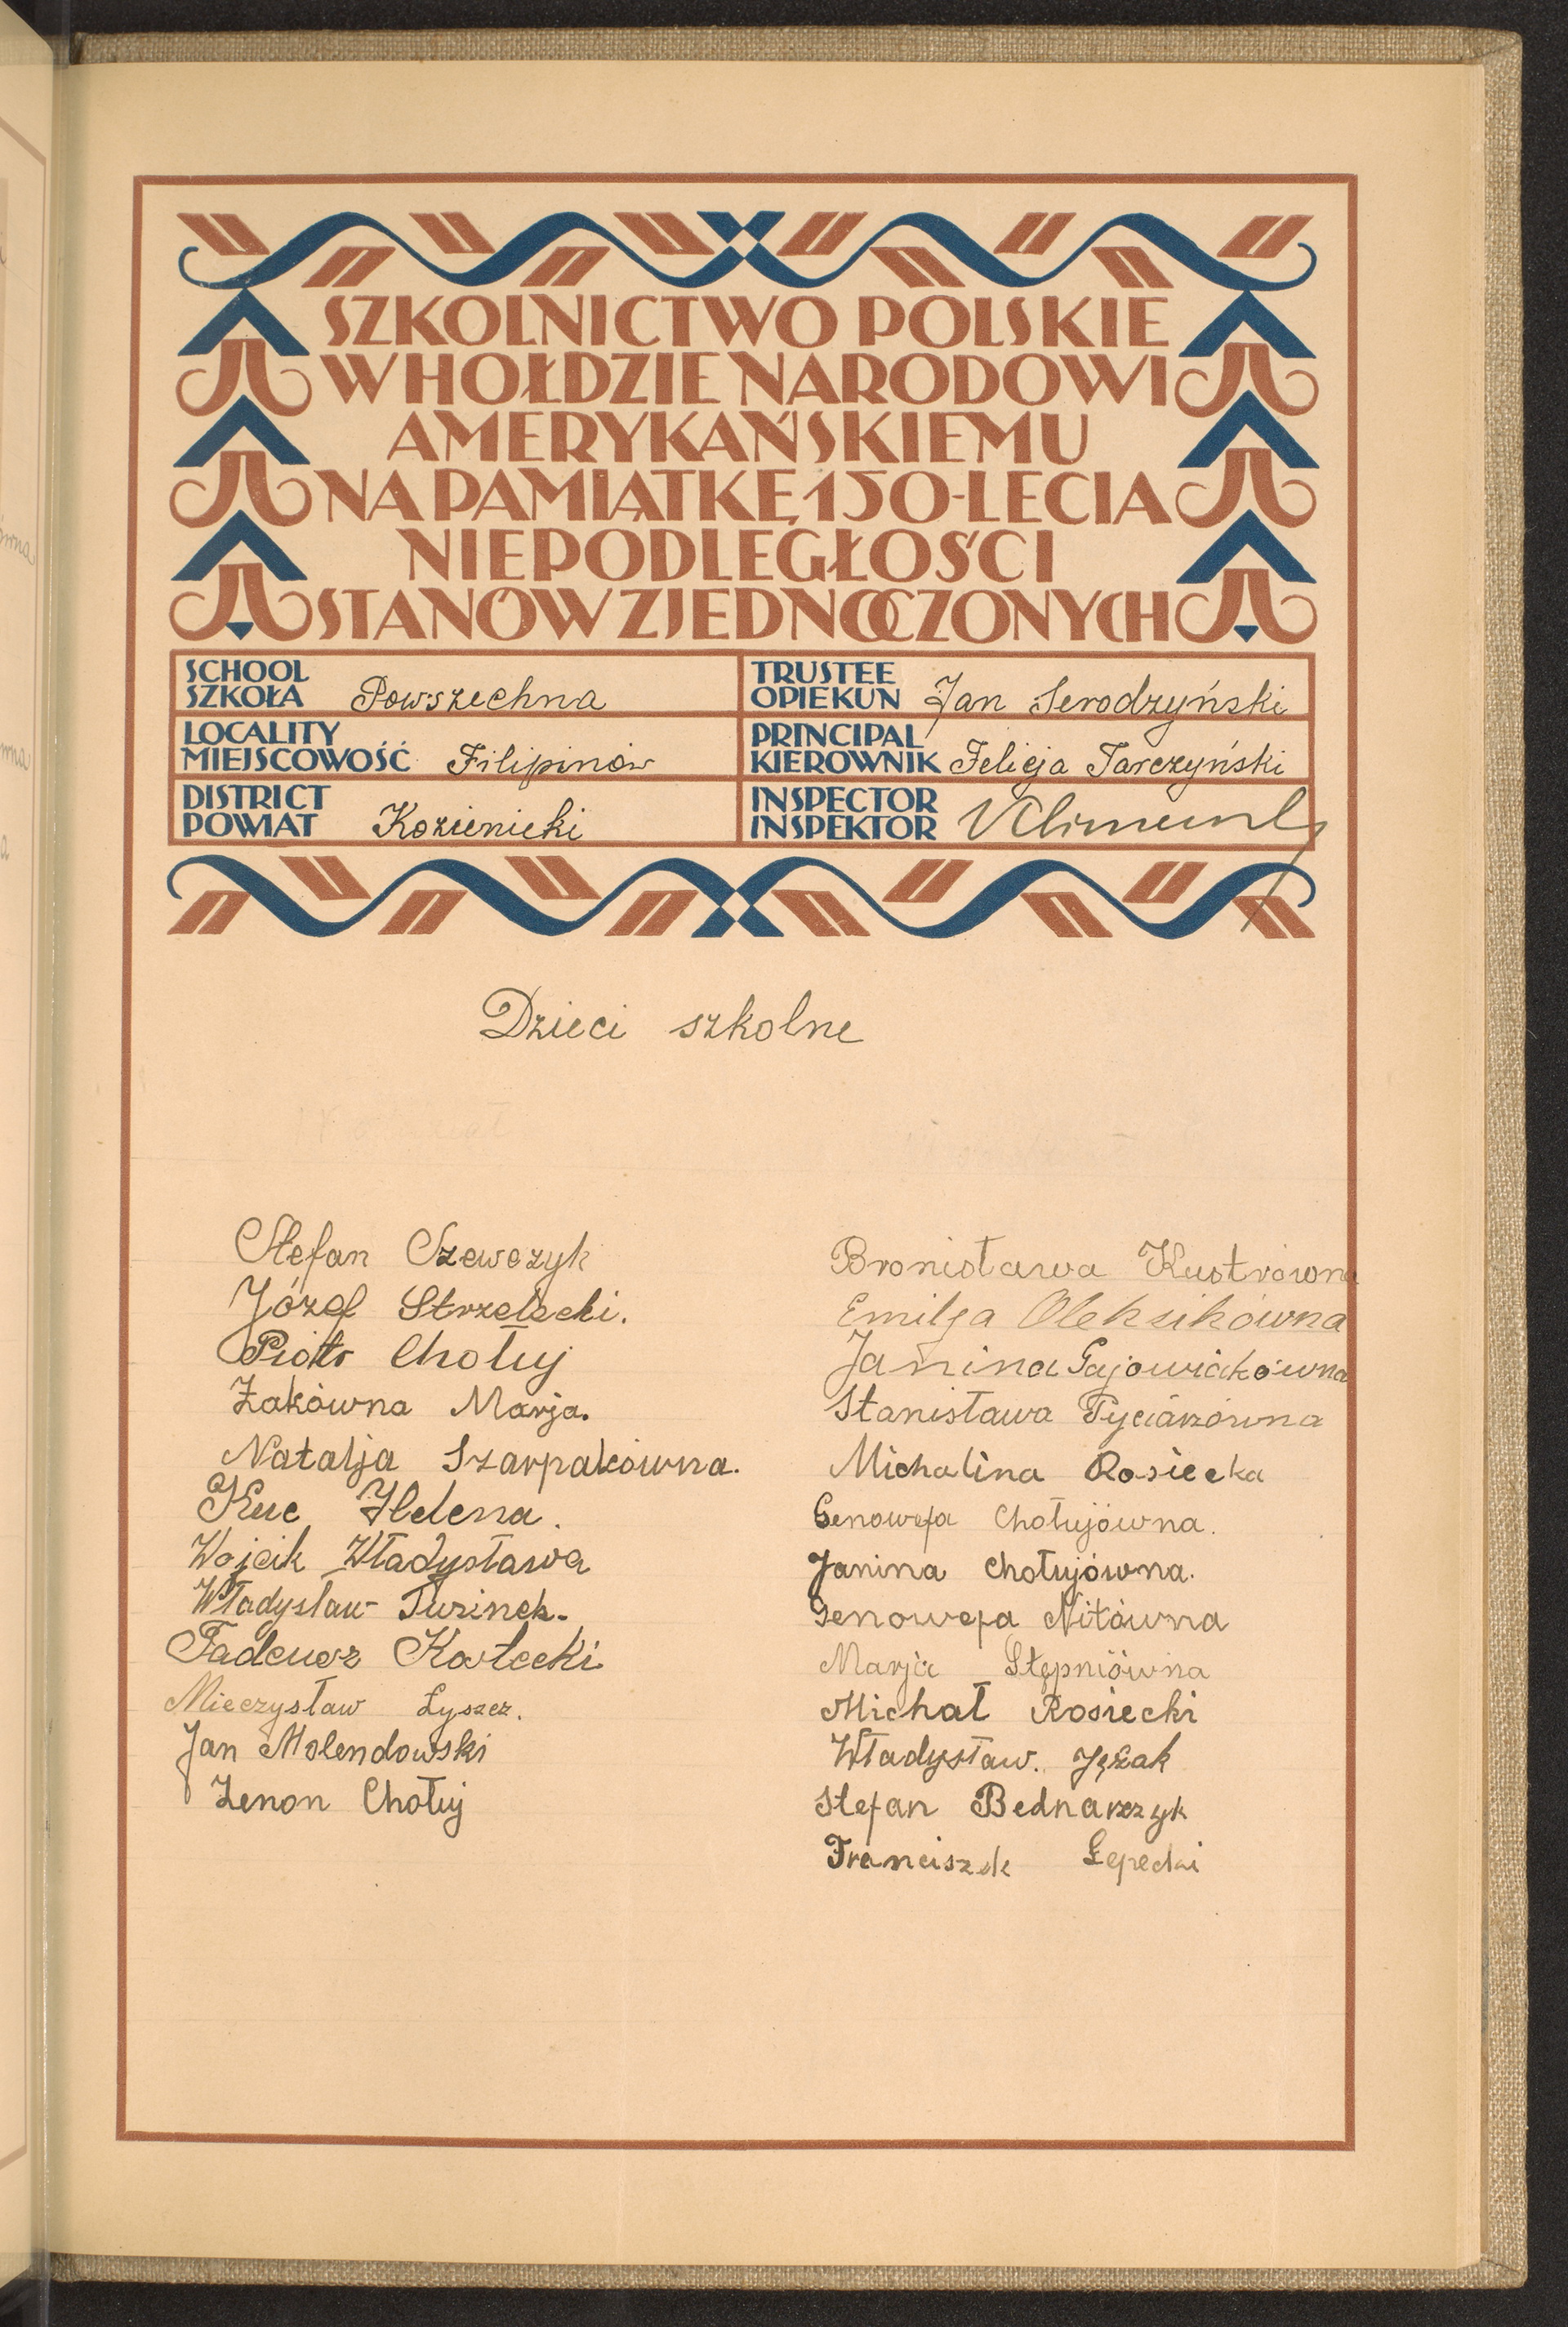 SZKOLNICTWO POLSKIE
W HOŁDZIE NARODOWI
AMERYKAŃSKIEMU
NA PAMIĄTKĘ 150-LECIA
NIEPODLEGŁOŚCI
STANÓW ZJEDNOCZONYCH
SCHOOL
SZKOŁA Powszechna
LOCALITY
MIEJSCOWOŚĆ Filipinów
DISTRICT
POWIAT Kozienicki
TRUSTEE
OPIEKUN Jan Serodzyński
PRINCIPAL
KIEROWNIK Felicja Tarczyński
INSPECTOR
INSPEKTOR
Dzieci szkolne
Stefan Szewczyk
Józef Strzelecki.
Piotr Chołuj
Żakówna Marja.
Natalja Szarpakówna.
Kuc Helena.
Wojcik Władysława
Władysław Turinek.
Tadeusz Kowlecki
Mieczysław Łyszcz.
Jan Molendowski
Zenon Chołuj
Bronisława Kustrówna
Emilja Oleksikówna
Janina Gajowiakówna
Stanisława Tyciarzówna
Michalina Rosiecka
Genowefa Chołujówna.
Janina Chołujówna.
Genowefa Nitówna
Marja Stępniówna
Michał Rosiecki
Władysław. Jężak
Stefan Bednarczyk
Franciszek Łepecki